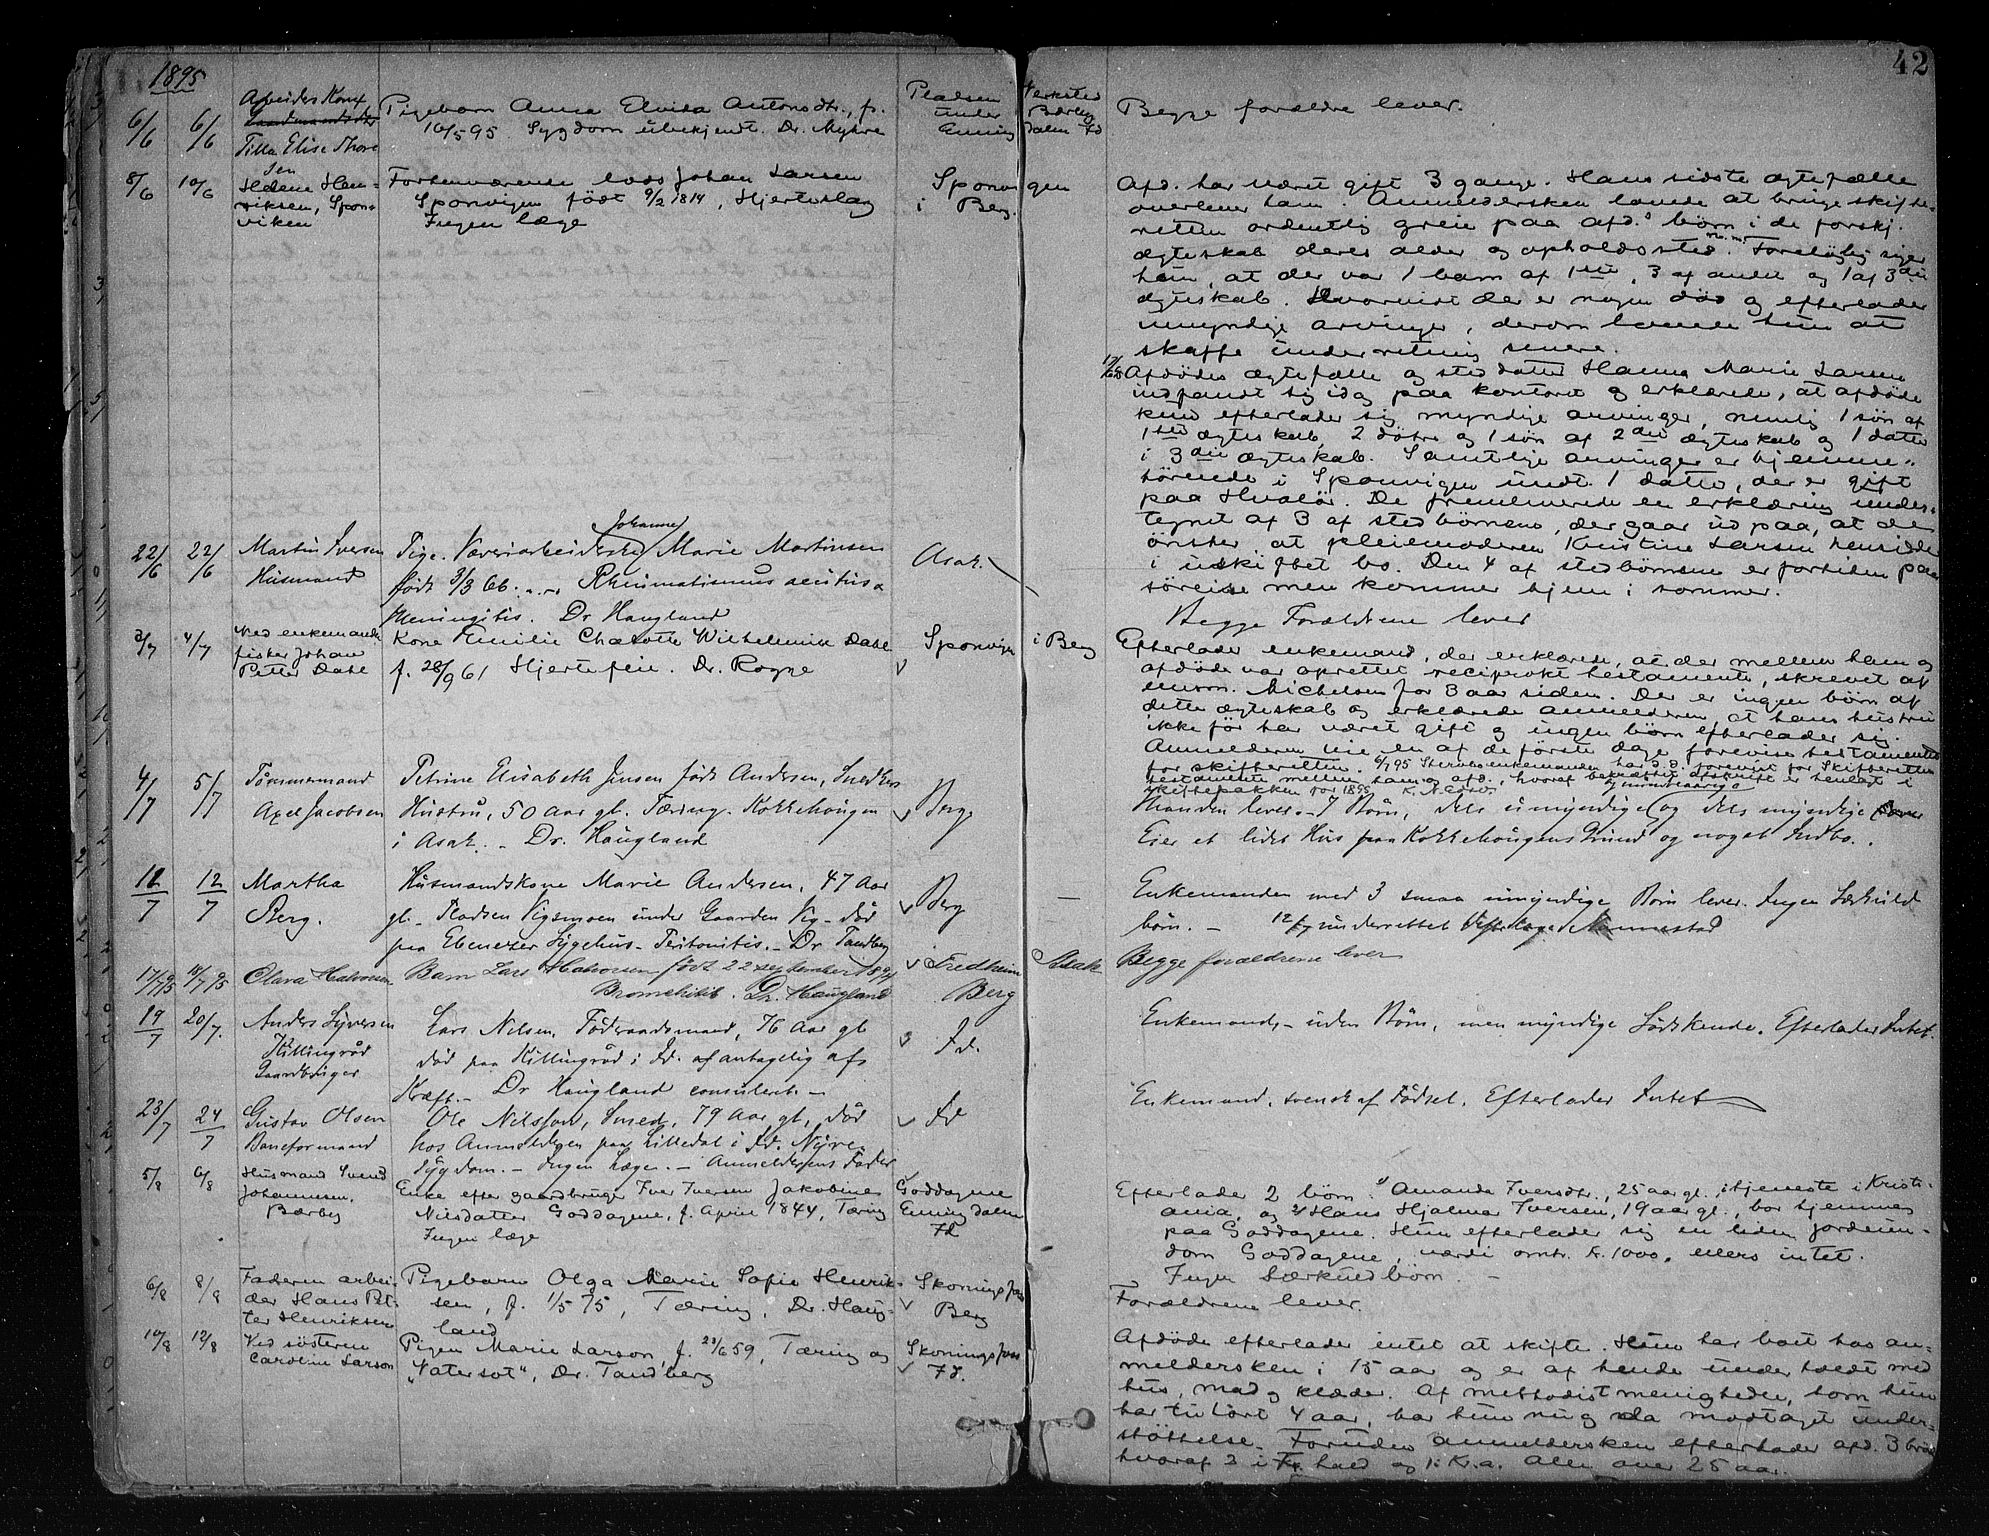 42
1895
6/6 6/6 Arbeiders Kone
Tilla Elise Thore
sen
Pigebarn Anna Elvida Antonsdtr., f.
10/5 95. Sygdom ubekjendt. Dr. Myhre
Pladsen
under
Enning
dalen Id
Begge forældre lever.
8/6 10/6 Helene Hen-
riksen, Spon-
viken
Forhenværende lods Johan Larsen
Sponvigen født 9/2 1814, Hjerteslag
Ingen læge
Sponvigen
i Berg.
Afd. har været gift 3 gange. Hans sidste ægtefælle
overlever ham. Anmeldersken lovede at bringe skifte-
retten ordentlig greie paa afd.s børn i de forskj.
ægteskab deres alder og opholdssted m.m. Foreløbig siger
hun, at der var 1 barn af 1ste, 3 af andet og 1 af 3die
ægteskab. Hvorvidt der er nogen død og efterlader
umyndige arvinger, derom lovede hun at
skaffe underretning senere.
Afdødes ægtefælle og steddatter Hanna Marie Larsen
indfandt sig idag paa kontoret og erklærede, at afdøde
kun efterlader sig myndige arvinger, nemlig 1 søn af
1ste ægteskab, 2 døtre og 1 søn af 2det ægteskab og 1 datter
i 3die ægteskab. Samtlige arvinger er hjemme-
hørende i Sponvigen undt. 1 datter, der er gift
paa Hvalør. De fremleverede en erklæring under-
tegnet af 3 af stedbørnene, der gaar ud paa, at de
ønsker at pleiemoderen Kristine Larsen hensidder
i uskiftet bo. Den 4 af stedbørnene er fortiden paa
søreise men kommer hjem i sommer.
22/6 22/6 Martin Iversen
Husmand
Pige. Væveriarbeiderske Johanne Marie Martinsen
født 3/3 66. Rheumatismus acutus &
Meningitis. Dr Haugland
Asak.
Begge Forældrene lever
3/7 4/7 Ved enkemand
fisker Johan
Petter Dahl
Kone Emilie Charlotte Wilhelmine Dahl
f. 28/9 61 Hjertefeil. Dr. Rogne
Sponvigen i Berg
Efterlader enkemand, der erklærede, at der mellem ham og
afdøde var oprettet reciprokt testamente, skrevet af
Michelsen for 3 aar siden. Der er ingen børn af
dette ægteskab og erklærede anmelderen, at hans hustru
ikke før har været gift og ingen børn efterlader sig.
Anmelderen vil en af de første dage forevise testamentet
for skifteretten. 6/7 95 Sterbo enkemanden har d.d. forevist for Skifteretten
testamente mellem ham og afd., hvoraf bekræftet afskrift er henlagt i
skiftepakken for 1895
4/7 5/7 Tømmermand
Axel Jacobsen
Petrine Elisabeth Jensen født Andersen, Snedkers
Hustru, 50 Aar gl. Tæring. Kokkehaugen
i Asak. - Dr. Haugland
Berg
Manden lever. - 7 Børn, dels umyndige og dels myndige
Eier et lidet Hus paa Kokkehaugens Grund og noget Indbo.
12/7 12/7 Martha
Berg.
Husmandskone Marie Andersen, 47 Aar
gl. Pladsen Vigsmoen under Gaarden Vig - død
paa Ebenezer Sygehus - Peritonitis. - Dr Tandberg
Berg
Enkemanden med 3 smaa umyndige Børn lever. Ingen Særkuld
børn. - 12/7 underrettet
17/7 95 18/7 95 Olava Halvorsen
Barn Lars Halvorsen født 22 september 1894
Bronchitis. Dr. Haugland
Fredheim Asak
Berg
Begge forældrene lever
19/7 20/7. Anders Syversen
Killingrød
Gaardbruger
Lars Nilsen, Føderaadsmand, 76 Aar gl
død paa Killingrød i Id. af antagelig afs
Kræft. - Dr Haugland consulent -
Id.
Enkemand, - uden Børn, men myndige Sødskende. Efterlader Intet.
23/7 24/7 Gustav Olsen
Baneformand
Ole Nilsson, Smed, 79 Aar gl, død
hos Anmelderen paa Lilledal i Id. Nyre-
sygdom. - Ingen Læge. - Anmelderens Fader
Id
Enkemand, svensk af Fødsel. Efterlader Intet
5/8 6/8 Husmand Svend
Johannesen,
Bærby
Enke efter gaardbruger Iver Iversen Jakobine
Nilsdatter Goddagene, f. April 1844, Tæring
Ingen læge
Goddagene
Enningdalen
Id
Efterlader 2 børn: 1) Amanda Iversdtr., 25 aar gl., i tjeneste i Kristi-
ania, og 2) Hans Hjalmar Iversen, 19 aar gl., bor hjemme
paa Goddagene. Hun efterlader sig en liden jordeien-
dom Goddagene, værdi omtr. Kr. 1000, ellers intet.
Ingen Særkuldbørn. -
6/8 8/8 Faderen arbei-
der Hans Pet-
ter Henriksen
Pigebarn Olga Marie Sofie Henrik-
sen, f. 1/5 75, Tæring, Dr. Haug-
land
Skoningsfoss
Berg
Forældrene lever.
10/8 12/8 Ved søsteren
Caroline Larson
Pigen Marie Larson, f. 23/6 59, Tæring og
"Vatersot", Dr. Tandberg
Skoningsfoss
Id.
Afdøde efterlader intet at skifte. Hun har boet hos an-
meldersken i 15 aar og er af hende underholdt med
hus, mad og klæder. Af methodistmenigheden, som hun
har tilhørt 4 aar, har hun nu og da modtaget under-
støttelse. Foruden anmeldersken efterlader afd. 3 brødre
hvoraf 2 i Fr.hald og 1 i Kr.a. Alle over 25 aar.